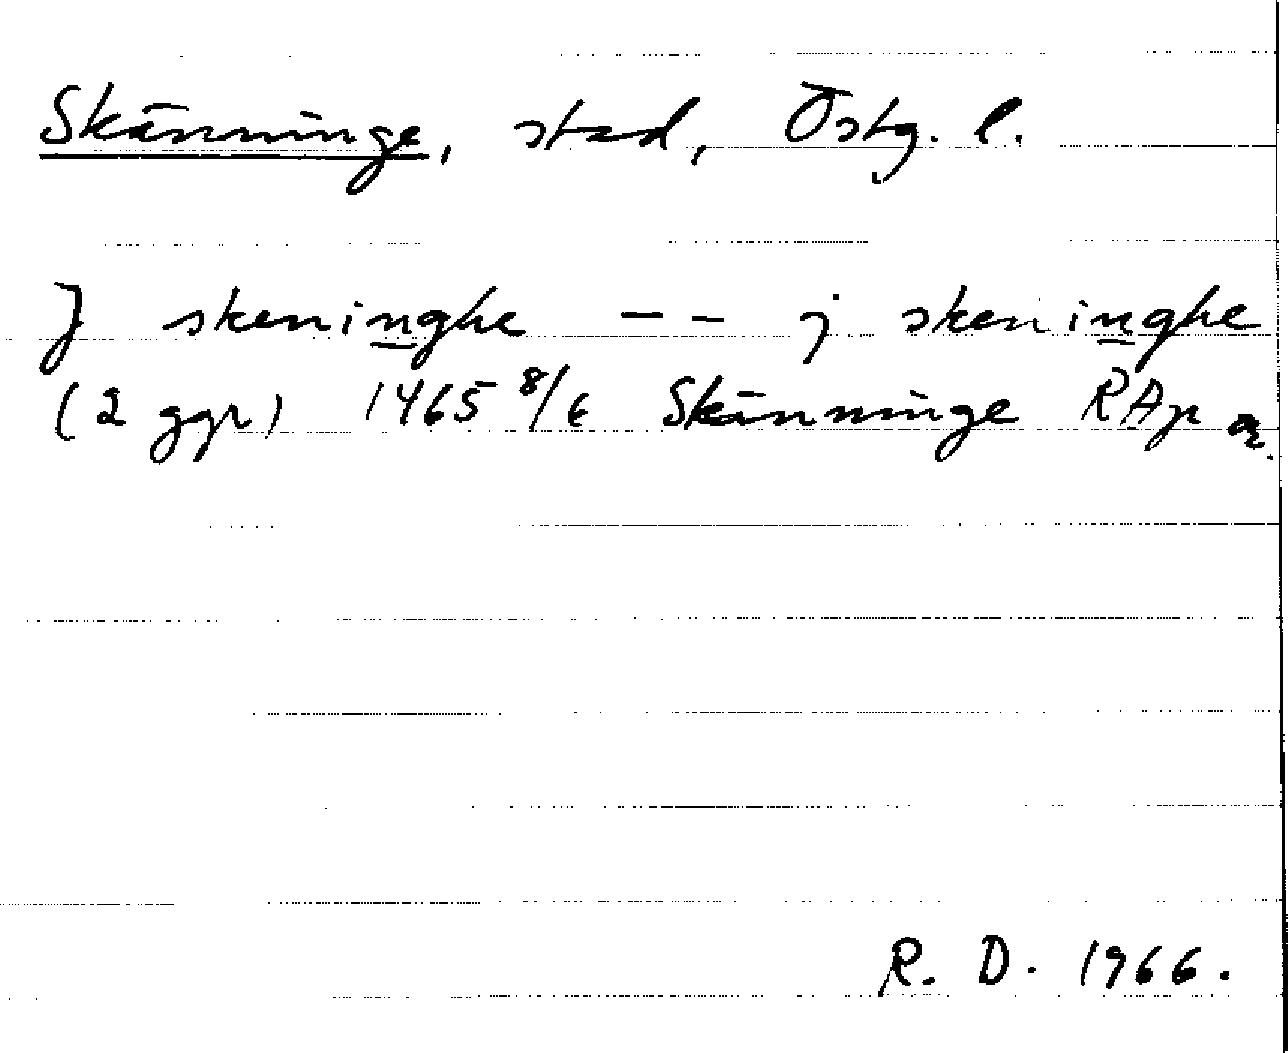 Skänninge, stad, Östg. l.
J skeninghe -- j skeninghe
(2 ggr) 1465 8/6 Skänninge RAp or.
R. D. 1966.